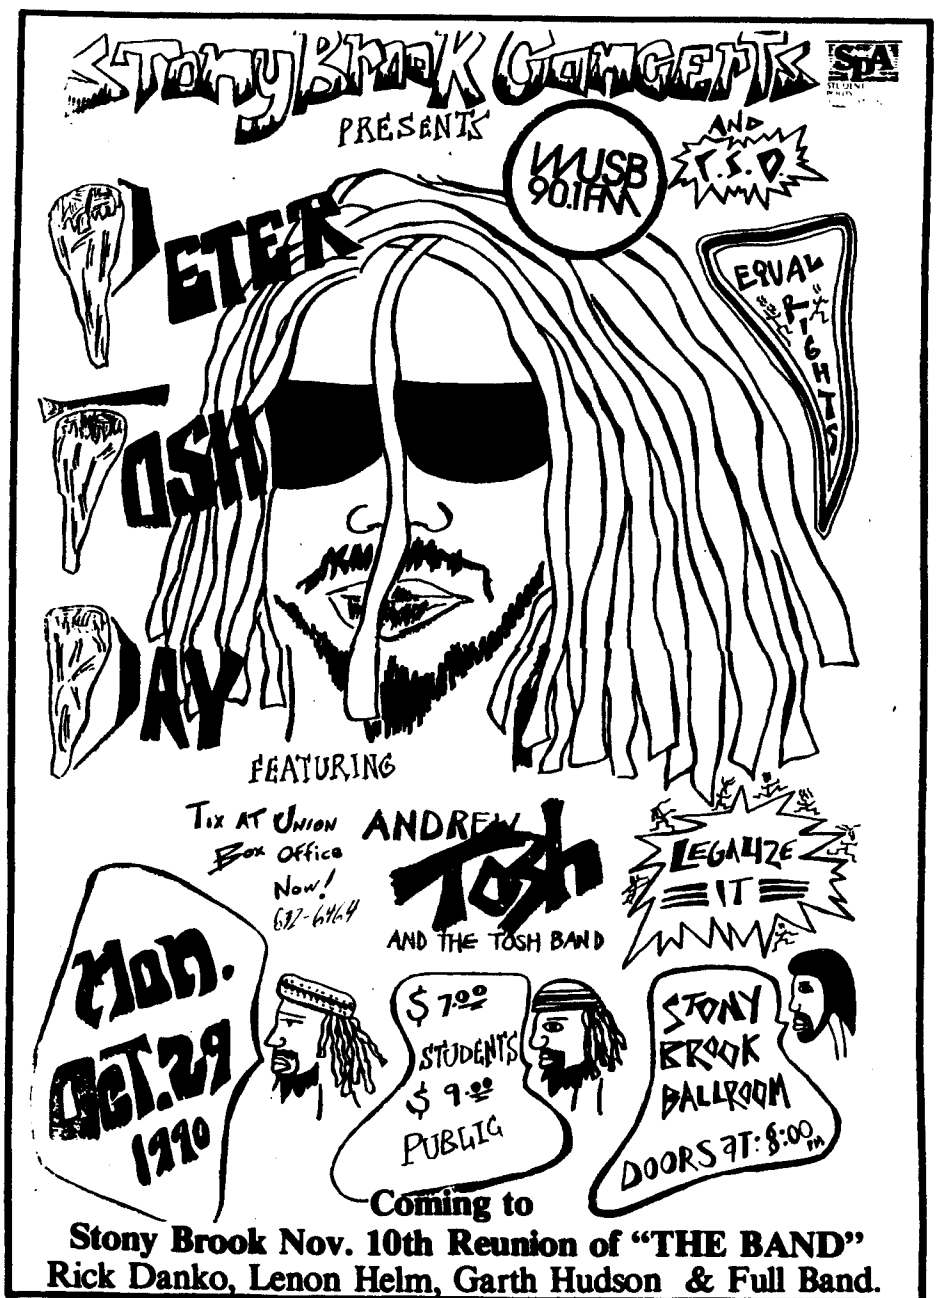 Stony Brook Concerts
SPA
PRESENTS
WUSB
90.1 FM
AND
T.S.O.
PETER
TOSH
DAY
EQUAL
RIGHTS
FEATURING
TIX AT UNION
Box Office
Now!
632-6464
ANDREW
Tosh
AND THE TOSH BAND
LEGALIZE
IT
Mon.
Oct. 29
1990
$ 7.00
STUDENTS
$ 9.00
PUBLIC
STONY
BROOK
BALLROOM
DOORS AT: 8:00 PM
Coming to
Stony Brook Nov. 10th Reunion of “THE BAND”
Rick Danko, Lenon Helm, Garth Hudson & Full Band.